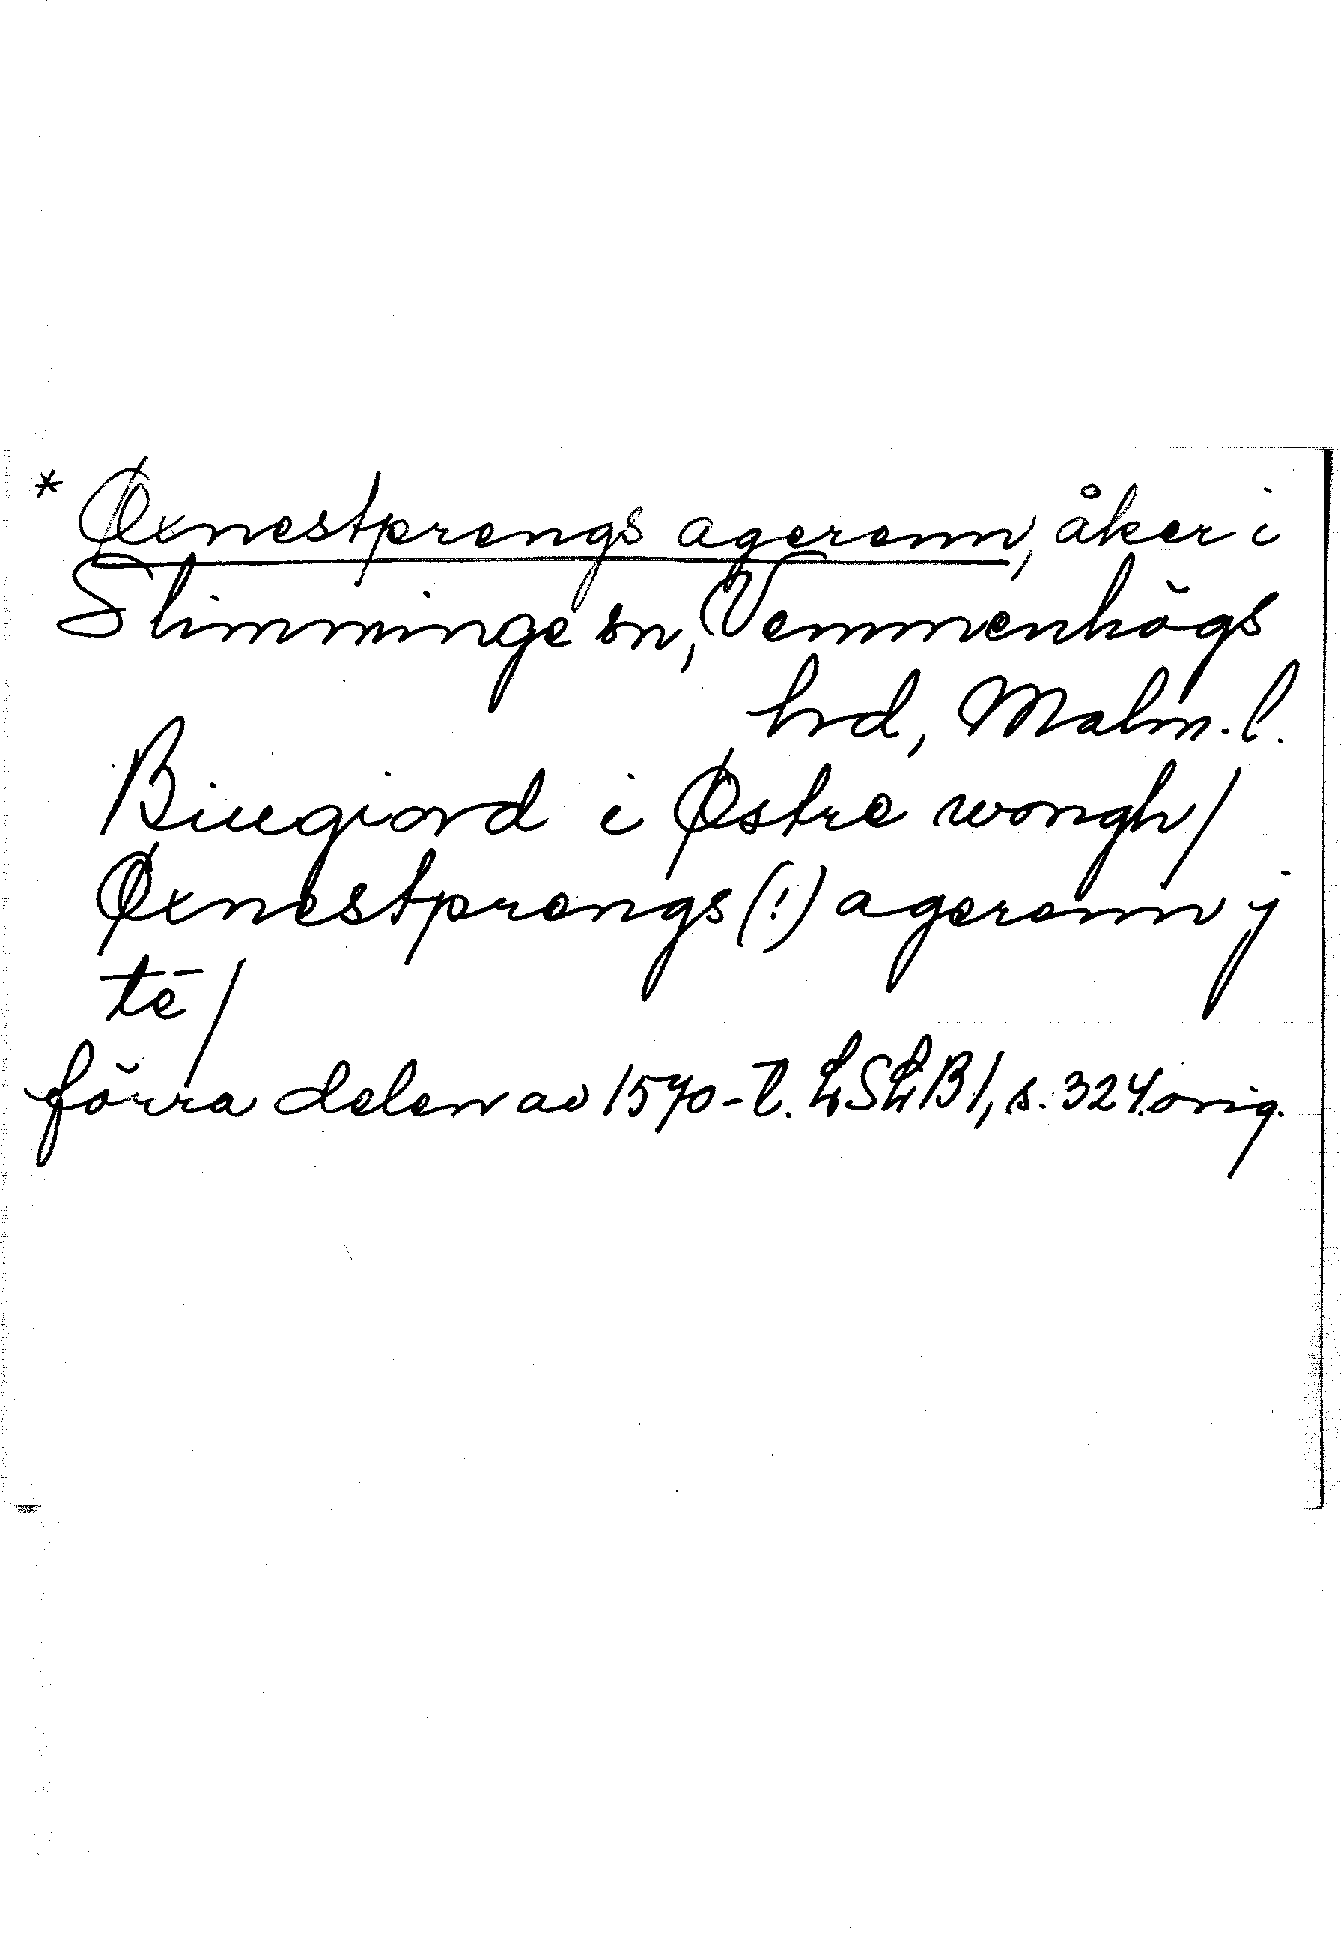 * Øxnestprengs agerenn, åker i
Slimminge sn, Vemmenhögs
hrd, Malm. l.
Biugiord i Østre wongh/
Øxnestprengs (!) agerenn j
tē/
förra delen av 1570-t. LSLB1, s. 324. orig.